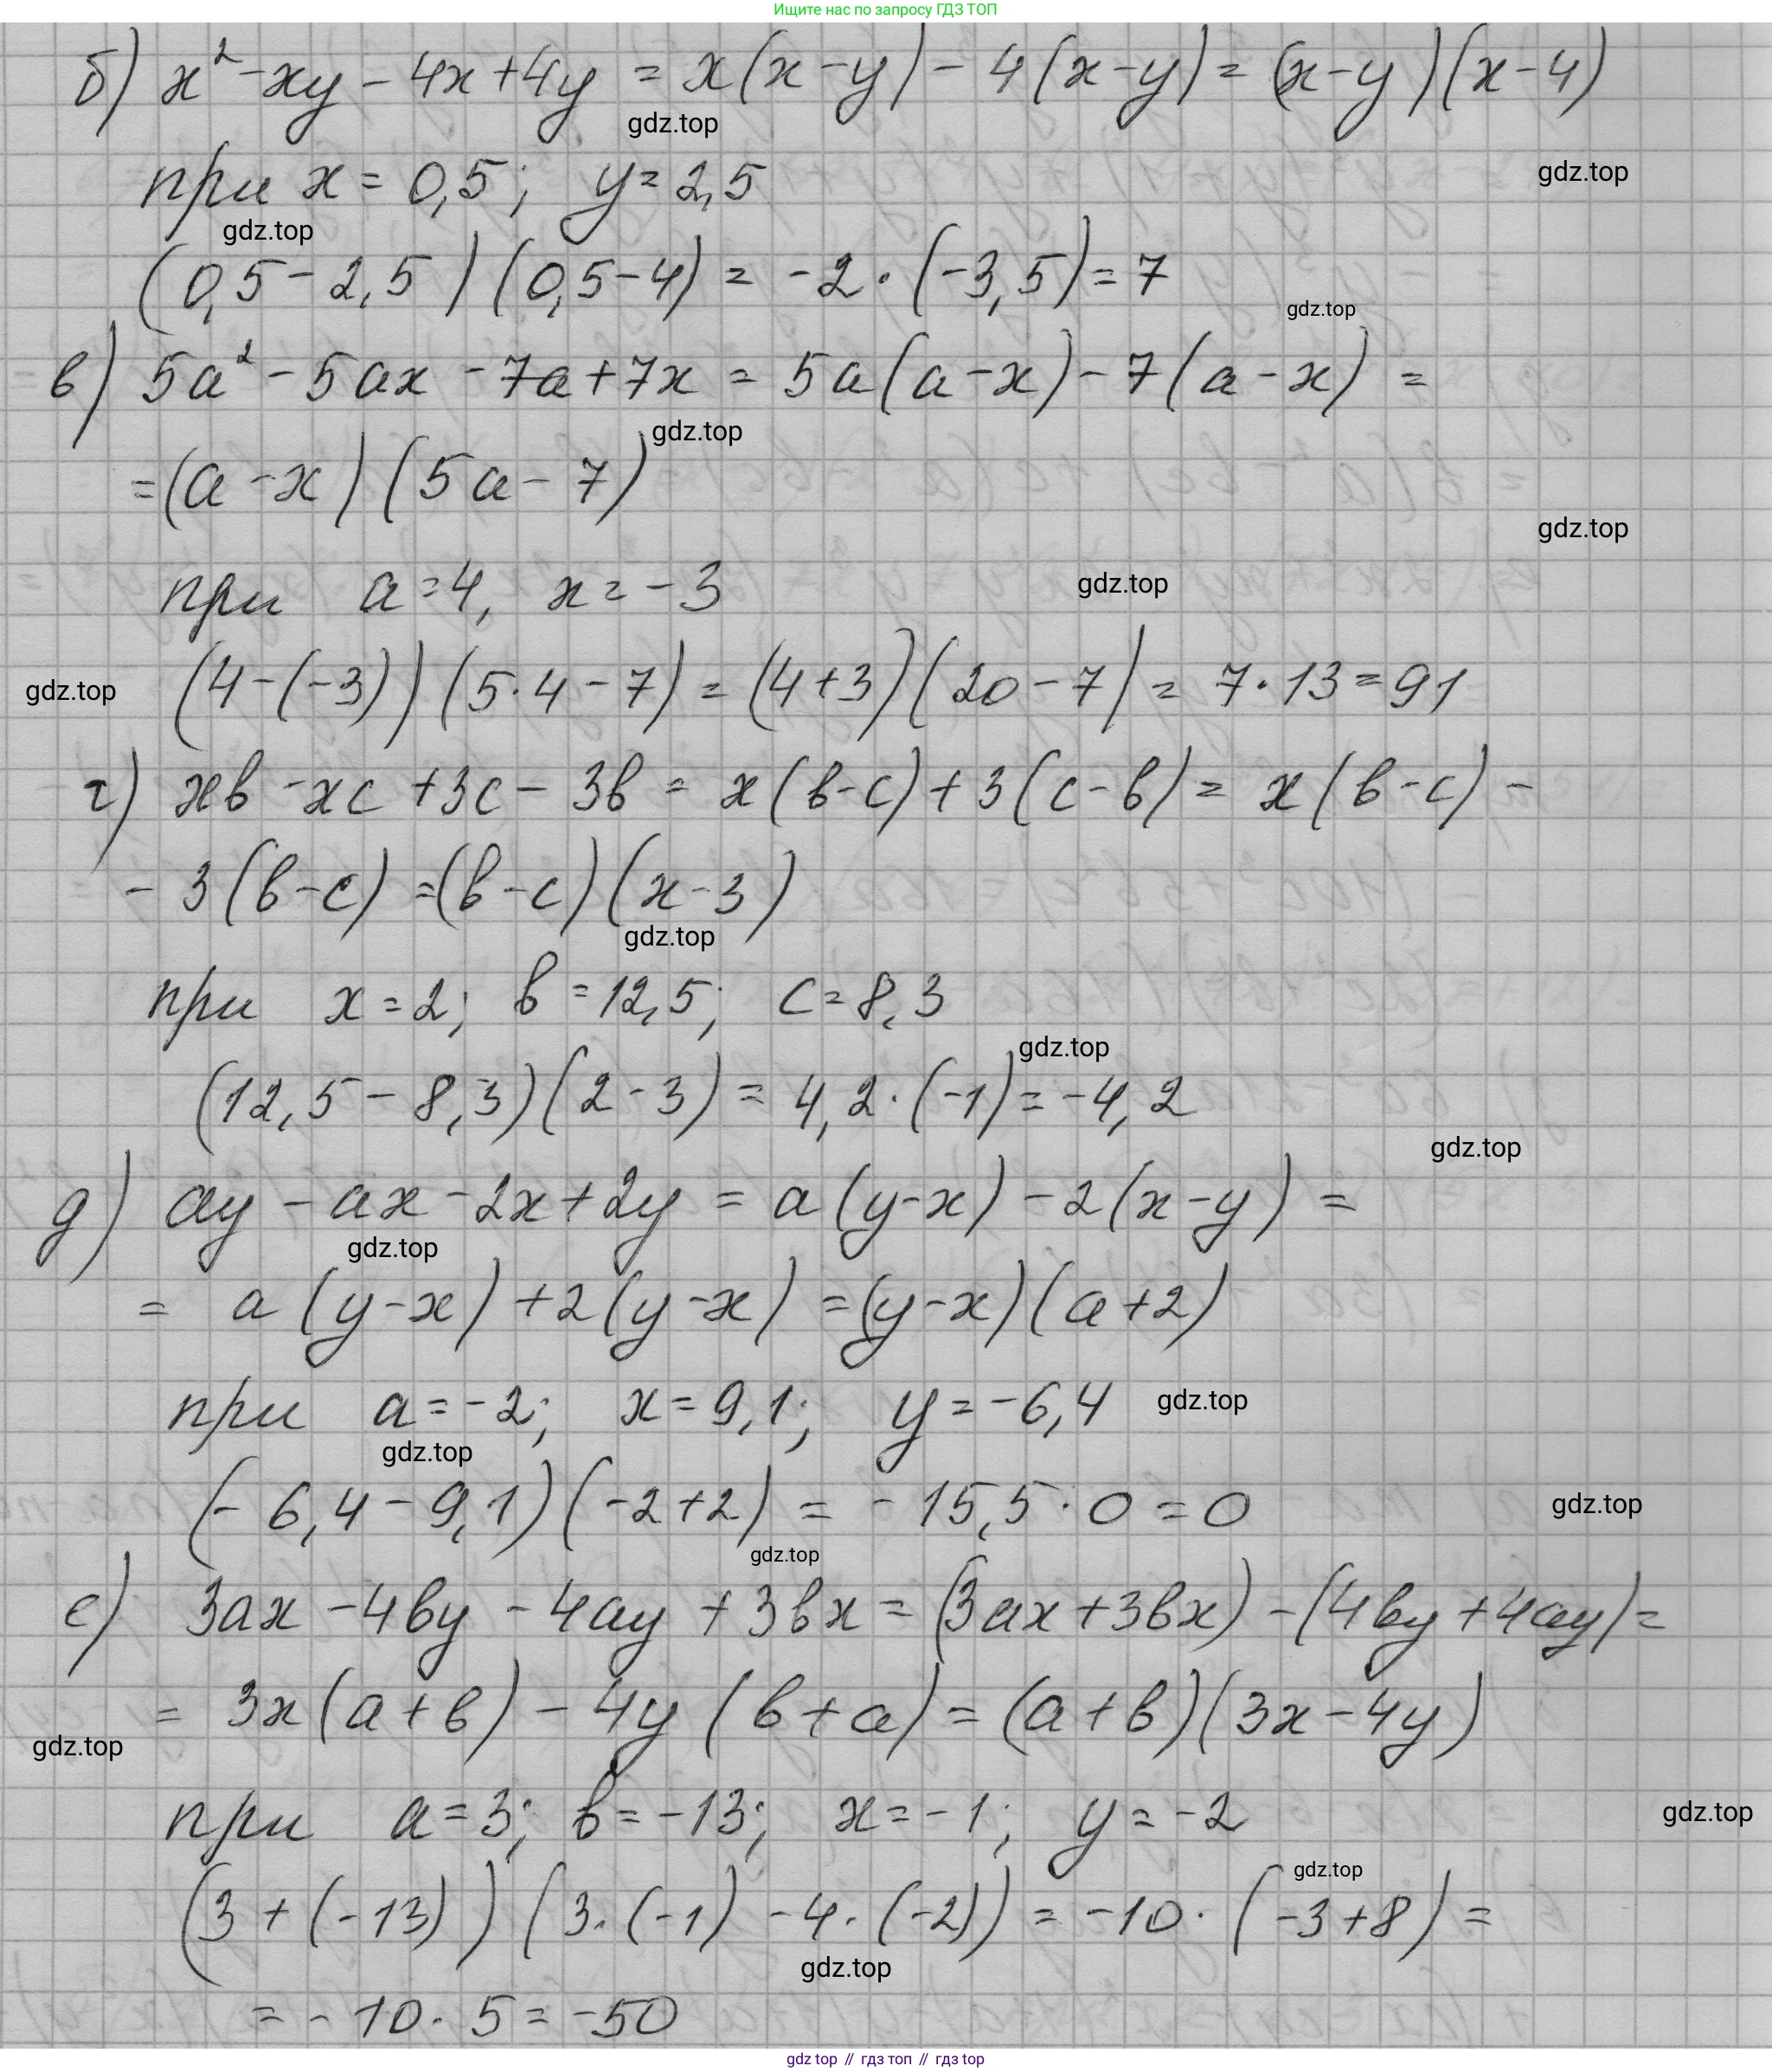 Ищите нас по запросу ГДЗ ТОП
б) x² - xy - 4x + 4y = x(x - y) - 4(x - y) = (x - y)(x - 4)
gdz.top
при x = 0,5; y = 2,5
gdz.top
gdz.top
(0,5 - 2,5)(0,5 - 4) = -2 · (-3,5) = 7
gdz.top
в) 5a² - 5ax - 7a + 7x = 5a(a - x) - 7(a - x) =
gdz.top
= (a - x)(5a - 7)
gdz.top
при a = 4, x = -3
gdz.top
(4 - (-3))(5 · 4 - 7) = (4 + 3)(20 - 7) = 7 · 13 = 91
gdz.top
г) xв - xc + 3c - 3в = x(в - c) + 3(c - в) = x(в - c) -
- 3(в - c) = (в - c)(x - 3)
gdz.top
при x = 2; в = 12,5; c = 8,3
gdz.top
(12,5 - 8,3)(2 - 3) = 4,2 · (-1) = -4,2
gdz.top
д) ay - ax - 2x + 2y = a(y - x) - 2(x - y) =
gdz.top
= a(y - x) + 2(y - x) = (y - x)(a + 2)
при a = -2; x = 9,1; y = -6,4
gdz.top
gdz.top
(-6,4 - 9,1)(-2 + 2) = -15,5 · 0 = 0
gdz.top
gdz.top
е) 3ax - 4вy - 4ay + 3вx = (3ax + 3вx) - (4вy + 4ay) =
= 3x(a + в) - 4y(в + a) = (a + в)(3x - 4y)
gdz.top
при a = 3; в = -13; x = -1; y = -2
gdz.top
gdz.top
(3 + (-13))(3 · (-1) - 4 · (-2)) = -10 · (-3 + 8) =
gdz.top
= -10 · 5 = -50
gdz top // гдз топ // гдз top